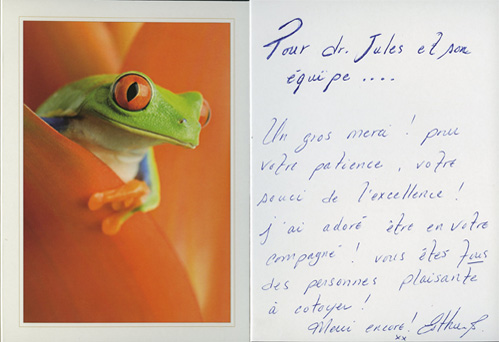 Pour dr. Jules et son
équipe ....
Un gros merci ! pour
votre patience, votre
souci de l'excellence !
j'ai adoré être en votre
compagné ! vous êtes tous
des personnes plaisante
à cotoyer !
Merci encore !
xx